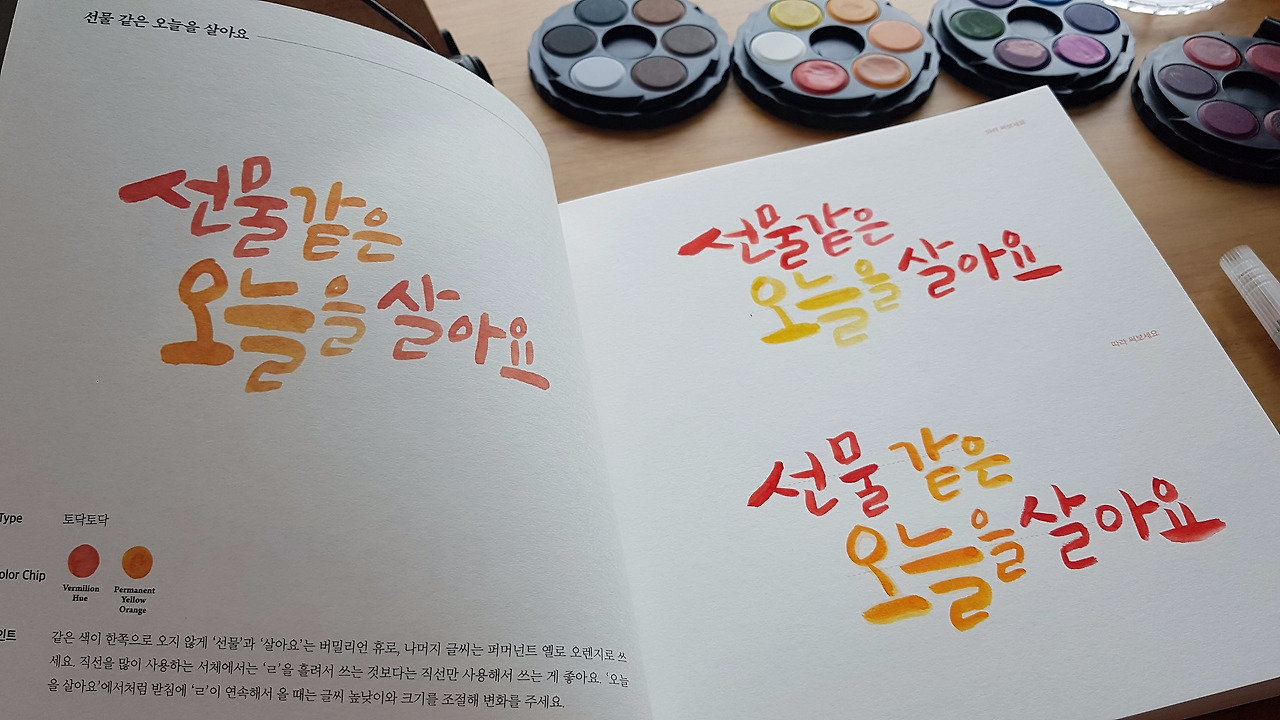 선물 같은 오늘을 살아요
선물같은
오늘을 살아요
Type 토닥토닥
olor Chip
Vermilion
Hue
Permanent
Yellow
Orange
인트
같은 색이 한쪽으로 오지 않게 ‘선물’과 ‘살아요’는 버밀리언 휴로, 나머지 글씨는 퍼머넌트 옐로 오렌지로 쓰
세요. 직선을 많이 사용하는 서체에서는 ‘ㄹ’을 흘려서 쓰는 것보다는 직선만 사용해서 쓰는 게 좋아요. ‘오늘
을 살아요’에서처럼 받침에 ‘ㄹ’이 연속해서 올 때는 글씨 높낮이와 크기를 조절해 변화를 주세요.
따라 써보세요
선물같은
오늘을 살아요
따라 써보세요
선물 같은
오늘을 살아요